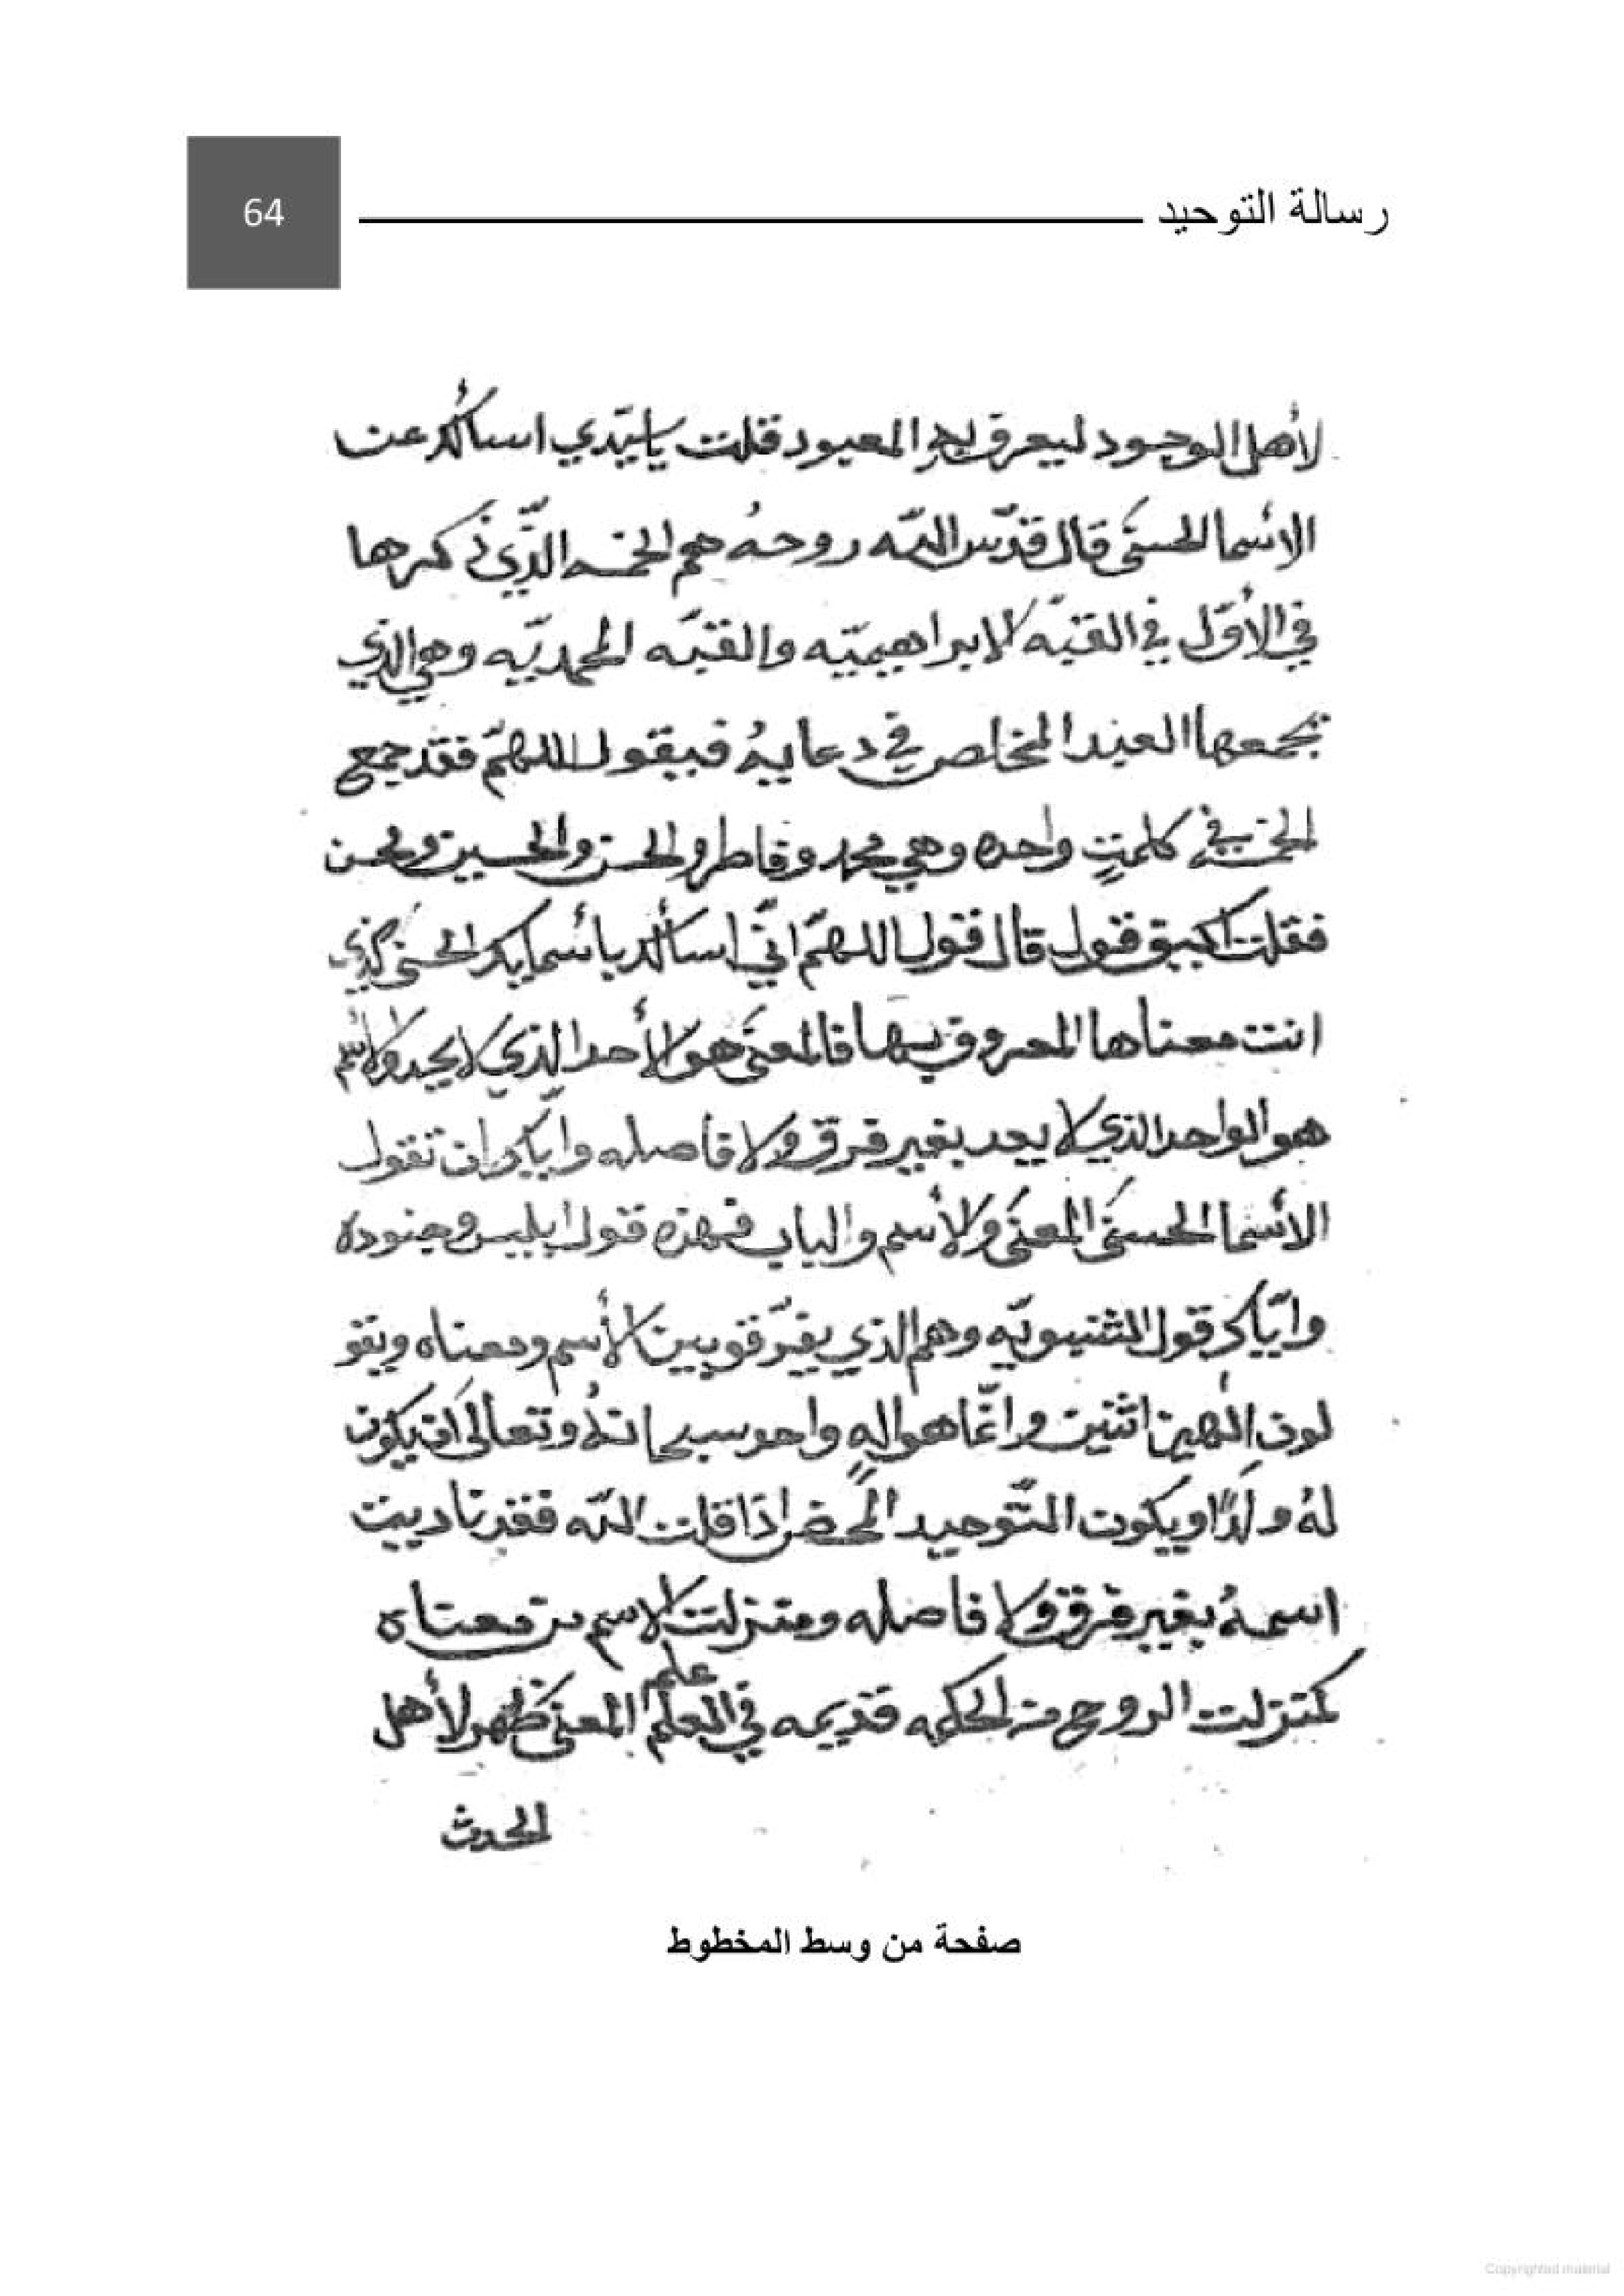 رسالة التوحيد
64
لأهل الوجود ليعرف به المعبود قلت ياسيّدي اسألك عن
الاسما الحسنى قال قدّس اللّه روحهُ هم الخمسه الذّي ذكرها
في الأوّل في القبّه الابراهيميّه والقبّه المحمديّه وهي الذي
يجمعها العبد المخلص في دعايهُ فيقول اللهمّ فقد جمع
الخمسه في كلمتٍ واحده وهي محمد وفاطر والحسن والحسين ومحسن
فقلت كيف قول قال قول اللهمّ انّي اسألك بأسمايك الحسنى الذي
انت معناها المعروف بها فالمعنى هو الأحد الذي لا يحد والأسم
هو الواحد الذي لا يعد بغير فرق ولا فاصله واياك ان تقول
الأسما الحسنى المعنى والأسم والباب فهذه قول ابليس وجنوده
وايّاك قول الثنيويّه وهم الذي يفرّقو بين الأسم ومعناه ويقو
لون الٰهين اثنين وانّما هو الهٍ واحد سبحانهُ وتعالى ان يكون
لهُ ولدًا ويكون التّوحيد المحض اذا قلت اللّه فقد ناديت
اسمهُ بغير فرق ولا فاصله ومنزلت الاسم من معناه
كمنزلت الروح من الحكمه قديمه في العلم علم المعنى ظهر لأهل
الحدث
صفحة من وسط المخطوط
Copyrighted material